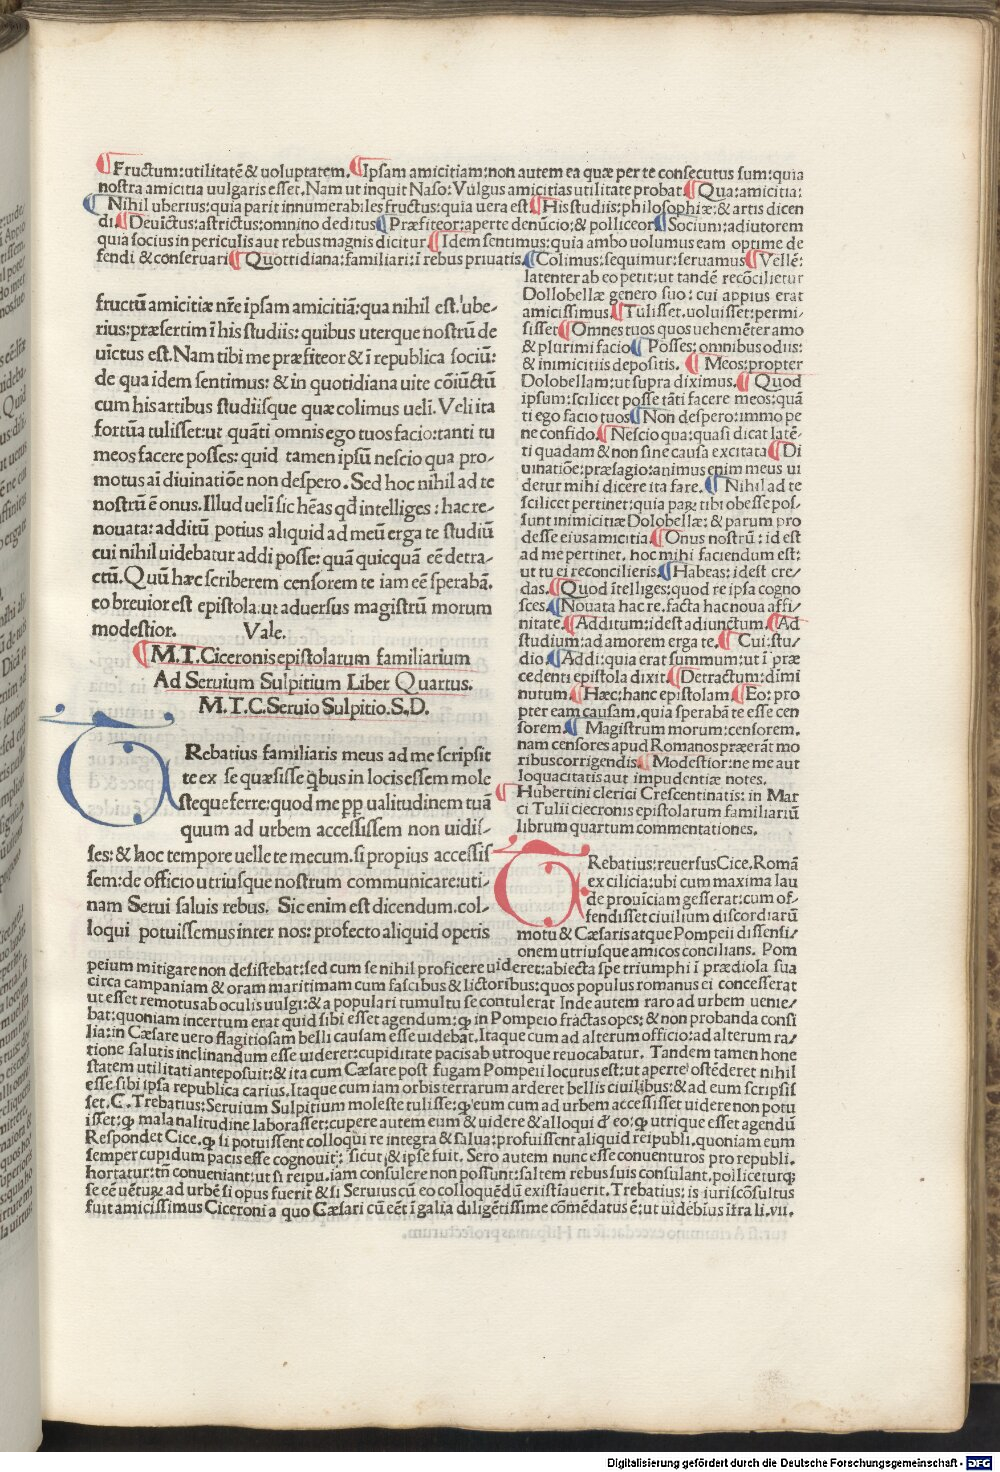 Fructum:utilitatē & uoluptatem. Ipsam amicitiam:non autem ea quæ per te consecutus sum:quia
nostra amicitia uulgaris esset. Nam ut inquit Naso: Vulgus amicitias utilitate probat. Qua:amicitia:
Nihil uberius:quia parit innumerabiles fructus:quia uera est. His studiis:philosophiæ:& artis dicen
di. Deuictus:astrictus:omnino deditus. Præfiteor:aperte denūcio:& polliceor. Socium:adiutorem
quia socius in periculis aut rebus magnis dicitur. Idem sentimus:quia ambo uolumus eam optime de
fendi & conseruari. Quottidiana:familiari:ī rebus priuatis. Colimus:sequimur:seruamus. Vellē:
latenter ab eo petit:ut tandē recōcilietur
Dollobellæ genero suo: cui appius erat
amicissimus. Tulisset.uoluisset:permi-
sisset. Omnes tuos quos uehemēter amo
& plurimi facio. Posses: omnibus odiis:
& inimicitiis depositis. Meos:propter
Dolobellam:ut supra diximus. Quod
ipsum:scilicet posse tāti facere meos:quā
ti ego facio tuos. Non despero:immo pe
ne confido. Nescio qua:quasi dicat latē-
ti quadam & non sine causa excitata. Di
uinatiōe:præsagio:animus enim meus ui
detur mihi dicere ita fare. Nihil ad te
scilicet pertinet:quia par tibi obesse pos/
sunt inimicitiæ Dolobellæ: & parum pro
desse eius amicitia. Onus nostrū: id est
ad me pertinet. hoc mihi faciendum est:
ut tu ei reconcilieris. Habeas: id est cre/
das. Quod ītelliges:quod re ipsa cogno
sces. Nouata hac re.facta hac noua affi/
nitate. Additum:id est adiunctum. Ad
studium:ad amorem erga te. Cui:stu/
dio. Addi:quia erat summum:ut ī præ
cedenti epistola dixit. Detractum:dimi
nutum. Hæc:hanc epistolam. Eo: pro
pter eam causam.quia sperabā te esse cen
sorem. Magistrum morum:censorem.
nam censores apud Romanos præerāt mo
ribus corrigendis. Modestior:ne me aut
loquacitatis aut impudentiæ notes.
fructū amicitiæ nr̄e ipsam amicitiā:qua nihil est.ube-
rius:præsertim ī his studiis: quibus uterque nostrū de
uīctus est. Nam tibi me præfiteor & ī republica sociū:
de qua idem sentimus: & in quotidiana uite cōiūctū
cum his artibus studiisque quæ colimus ueli. Veli ita
fortūa tulisset:ut quāti omnis ego tuos facio:tanti tu
meos facere posses: quid tamen ipsū nescio qua pro-
motus ai diuinatiōe non despero. Sed hoc nihil ad te
nostrū ē onus. Illud uelī sic hēas qđ intelliges : hac re-
nouata: additū potius aliquid ad meū erga te studiū
cui nihil uidebatur addi posse: quā quicquā eē detra-
ctū. Quū hæc scriberem censorem te iam eē sperabā.
eo breuior est epistola:ut aduersus magistrū morum
modestior. Vale.
M.T. Ciceronis epistolarum familiarium
Ad Seruium Sulpitium Liber Quartus.
M.T.C. Seruio Sulpitio. S.D.
TRebatius familiaris meus ad me scripsit
te ex se quæsisse q̄bus in locis essem mole
steque ferre:quod me pp ualitudinem tuā
quum ad urbem accessissem non uidis-
ses: & hoc tempore uelle te mecum.si propius accessis
sem:de officio utriusque nostrum communicare:uti-
nam Serui saluis rebus. Sic enim est dicendum.col-
loqui potuissemus inter nos: profecto aliquid operis
Hubertini clerici Crescentinatis: in Mar
ci Tulii ciecronis epistolarum familiariū
librum quartum commentationes.
TRebatius:reuersus Cice. Romā
ex cilicia:ubi cum maxima lau
de prouīciam gesserat:cum of-
fendisset ciuilium discordiarū
motu & Cæsaris atque Pompeii dissensi/
onem utriusque amicos concilians. Pom
peium mitigare non desistebat:sed cum se nihil proficere uideret:abiecta spe triumphi ī prædiola sua
circa campaniam & oram maritimam cum fascibus & lictoribus:quos populus romanus ei concesserat
ut esset remotus ab oculis uulgi:& a populari tumultu se contulerat Inde autem raro ad urbem uenie/
bat:quoniam incertum erat quid sibi esset agendum:ꝙ in Pompeio fractas opes: & non probanda consi
lia:in Cæsare uero flagitiosam belli causam esse uidebat. Itaque cum ad alterum officio:ad alterum ra/
tione salutis inclinandum esse uideret:cupiditate pacis ab utroque reuocabatur. Tandem tamen hone
statem utilitati anteposuit:& ita cum Cæsare post fugam Pompeii locutus est:ut aperte ostēderet nihil
esse sibi ipsa republica carius. Itaque cum iam orbis terrarum arderet bellis ciuilibus:& ad eum scripsis
set. C. Trebatius: Seruium Sulpitium moleste tulisse:ꝙ eum cum ad urbem accessisset uidere non potu
isset:ꝙ mala nalitudine laborasset:cupere autem eum & uidere & alloqui d' eo:ꝙ utrique esset agendū
Respondet Cice.ꝙ si potuissent colloqui re integra & salua:profuissent aliquid reipubli.quoniam eum
semper cupidum pacis esse cognouit: sicut & ipse fuit. Sero autem nunc esse conuenturos pro republi.
hortatur:tn̄ conueniant:ut si reipu.iam consulere non possunt:saltem rebus suis consulant.polliceturq;
se eē uētur ad urbē si opus fuerit & si Seruius cū eo colloquēdū existīauerit. Trebatius: is iuriscōsultus
fuit amicissimus Ciceroni a quo Cæsari cū eēt ī galia diligētissime cōmēdatus ē:ut uidebius īfra li. vii.
Digitalisierung gefördert durch die Deutsche Forschungsgemeinschaft - DFG